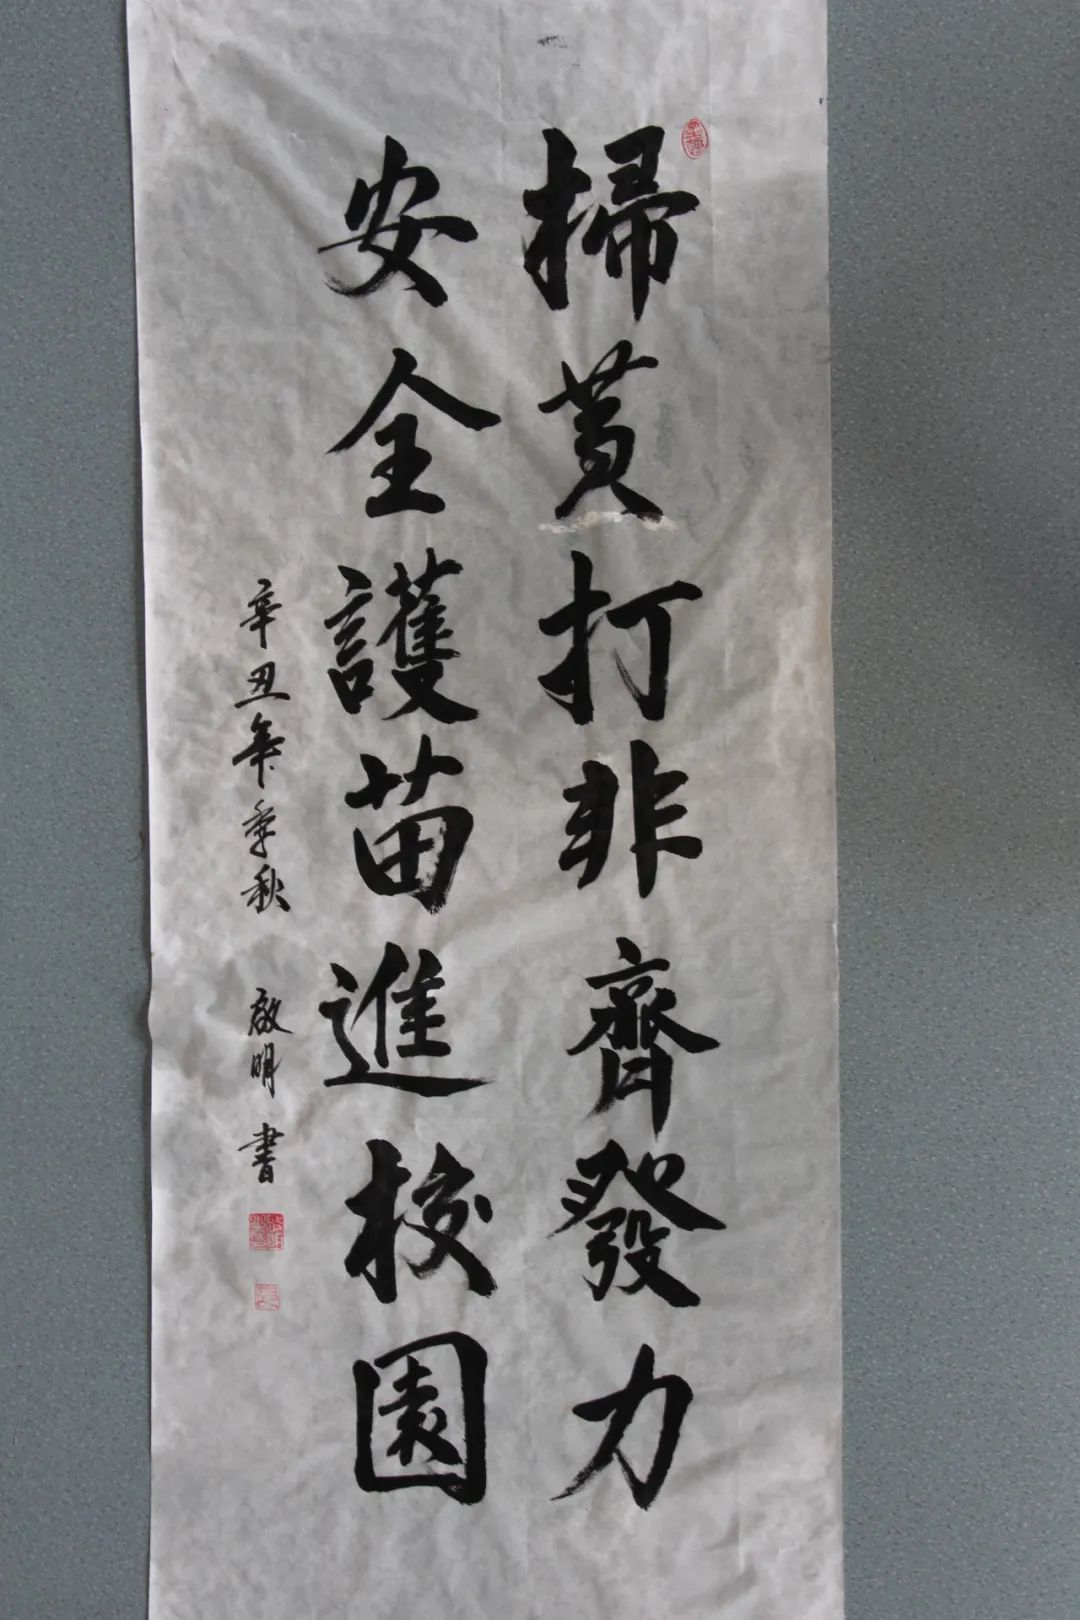 掃黄打非齊發力
安全護苗進校園
辛丑年季秋 啟明書